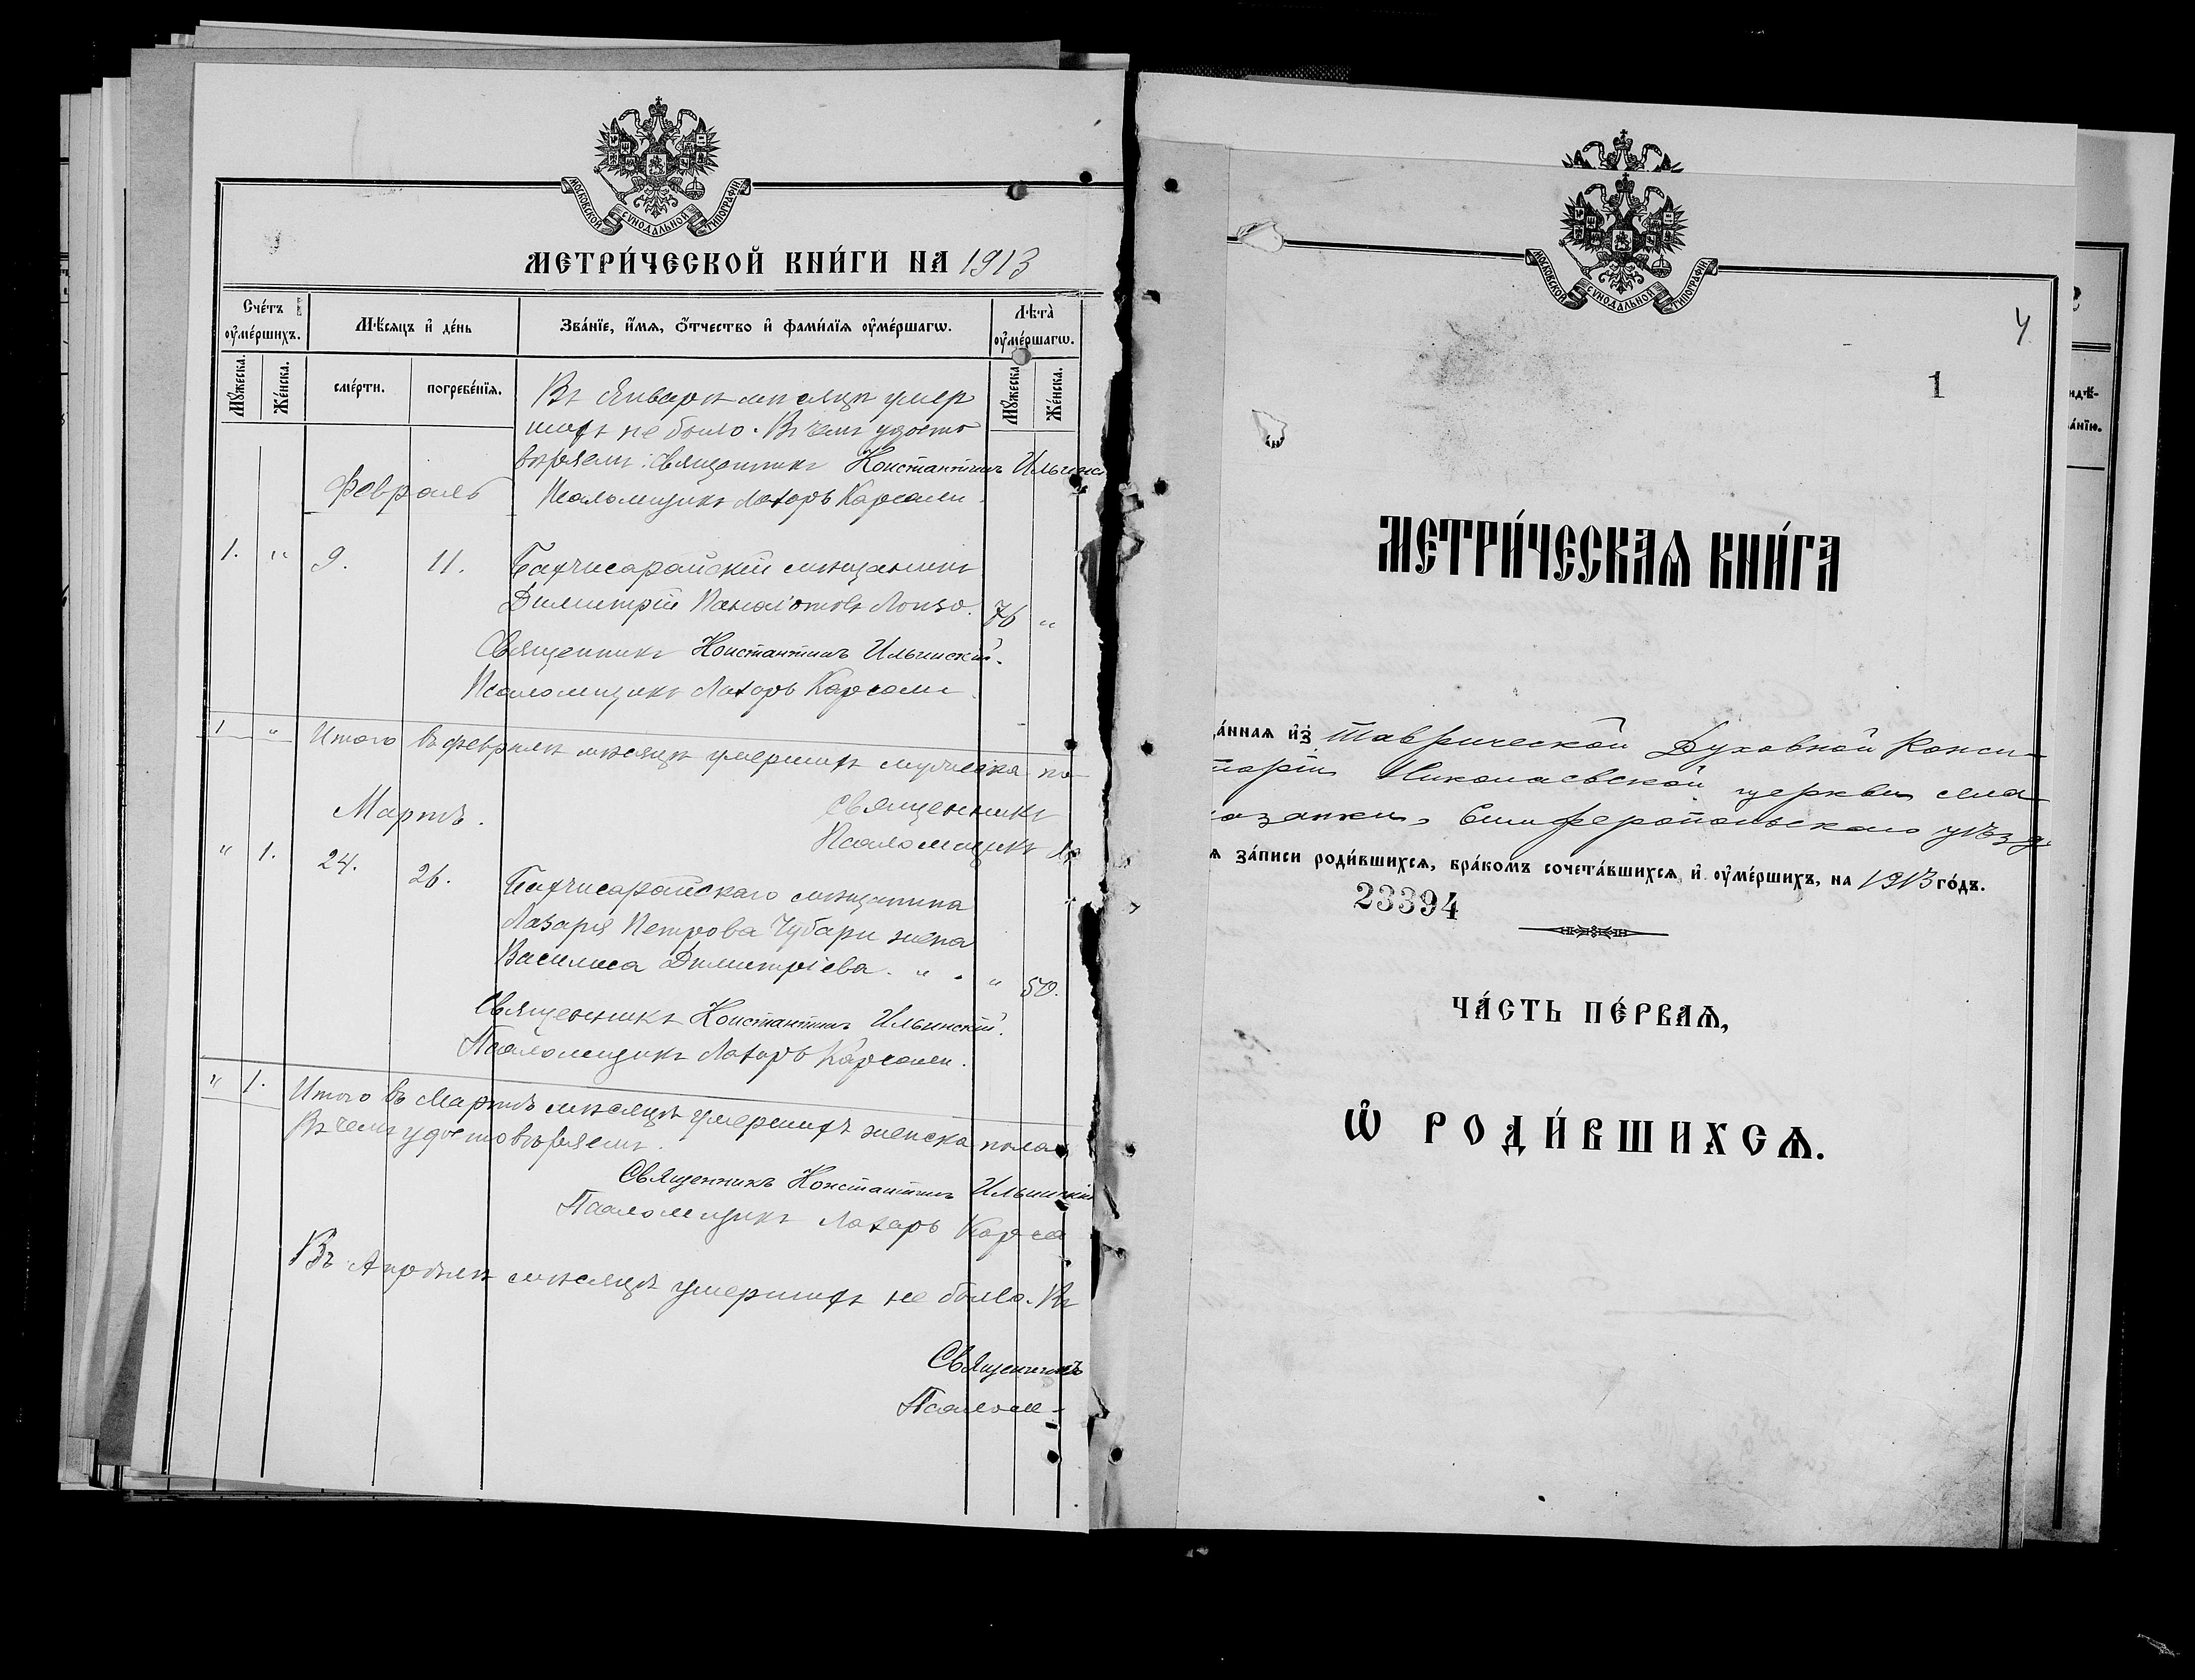 МОСКОВСКОЙ СѴНОДАЛЬНОЙ ТИПОГРАФІИ
МЕТРИ́ЧЕСКОЙ КНИ́ГИ НА 1913
Сче́тъ оу҆ме́ршихъ.
Мѣ́сяцъ и҆ де́нь
Зва́нїе, и҆́мѧ, ѻ҆́тчество и҆ фами́лїѧ оу҆ме́ршагѡ.
Лѣта̀ оу҆ме́ршагѡ.
Мꙋ́жеска.
Же́нска.
сме́рти.
погребе́нїѧ.
Мꙋ́жеска
Же́нска.
Въ Январѣ мѣсяцѣ умер
шихъ не было. Въ чемъ удосто
вѣряемъ: Священникъ Константинъ Ильинс
Псаломщикъ Лазарь Карсали
Февраль
1. " 9. 11. Бахчисарайскій мѣщанинъ
Димитрій Панаіотовъ Лонзо. 76 "
Священникъ Константинъ Ильинскій.
Псаломщикъ Лазарь Карсали
1 " Итого въ февралѣ мѣсяцѣ умершихъ мужеска по-
Священникъ
Мартъ.
Псаломщикъ Ла
" 1. 24. 26. Бахчисарайскаго мѣщанина
Лазаря Петрова Чубари жена
Василиса Димитріева. " . " 50.
Священникъ Константинъ Ильинскій.
Псаломщикъ Лазарь Карсали.
" 1. Итого въ Мартѣ мѣсяцѣ умершихъ женска пола
Въ чемъ удостовѣряемъ.
Священникъ Константинъ Ильинскій
Псаломщикъ Лазарь Карса
Въ Апрѣлѣ мѣсяцѣ умершихъ не было. Въ
Священникъ
Псалом-
МОСКОВСКОЙ СѴНОДАЛЬНОЙ ТИПОГРАФІИ
4
1
МЕТРИ́ЧЕСКАѦ КНИ́ГА
а́ннаѧ и҆з̾ Таврической Духовной Конси-
торіи Николаевской церкви села
озанки, Симферопольскаго уѣзд.
ѧ за́писи роди́вшихсѧ, бра́комъ сочета́вшихсѧ и҆ оу҆ме́ршихъ, на 1913 го́дъ.
23394
ЧА́СТЬ ПЕ́РВАѦ,
Ѽ РОДИ́ВШИХСѦ.